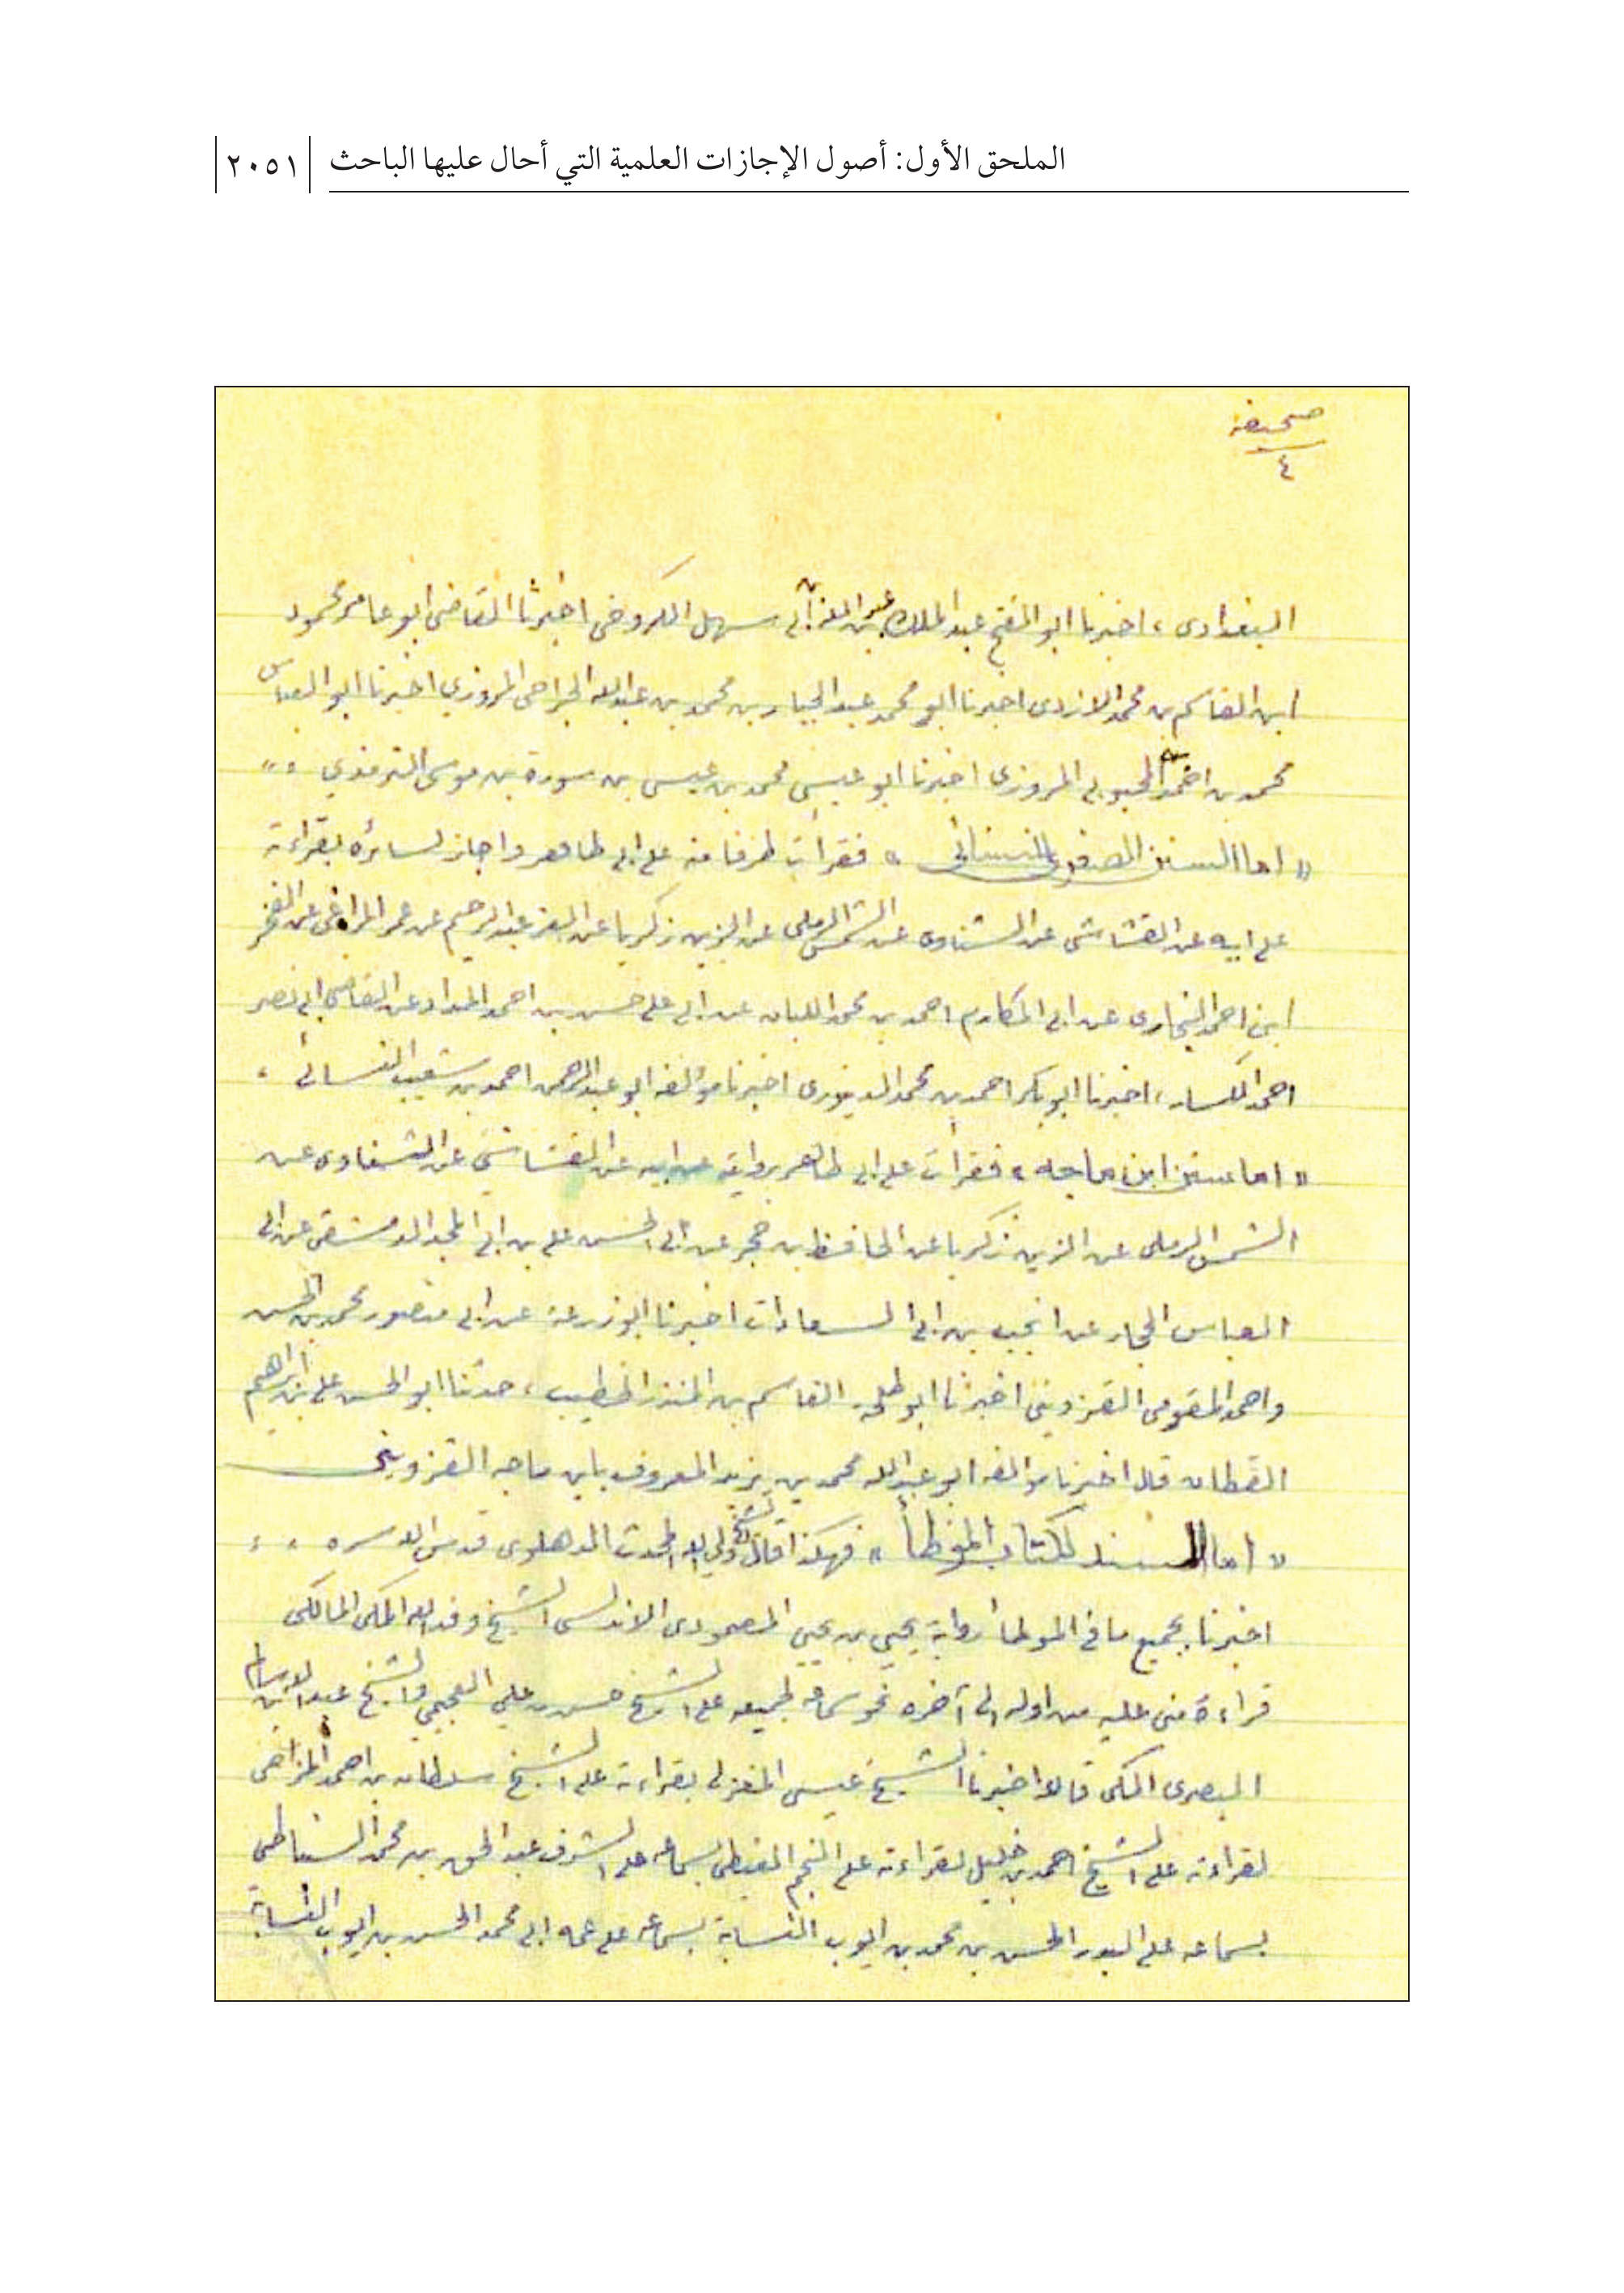 الملحق الأول: أصول الإجازات العلمية التي أحال عليها الباحث ٢٠٥١
صحيفة
٤
البغدادى، اخبرنا ابو الفتح عبد الملك بن ابى سهل الكروخى اخبرنا القاضى ابو عامر محمود
ابن القاسم بن محمد الازدى اخبرنا ابو محمد عبد الجبار بن محمد بن عبد الله الجراحى المروزي اخبرنا ابو العباس
محمد بن احمد المحبوبى المروزى اخبرنا ابو عيسى محمد بن عيسى بن سورة بن موسى الترمذي
« اما السنن الصغرى للنسائى » فقرأت طرفا منه على ابى طاهر واجاز لسائره بقراءته
على ابيه عن القشاشى عن الشناوى عن الشمس الرملى عن الزين زكريا عن العز عبد الرحيم عن عمر المراغى عن الفخر
ابن احمد البخارى عن ابى المكارم احمد بن محمد اللبان عن ابى على حسن بن احمد الحداد عن القاضى ابى نصر
احمد الكسار، اخبرنا ابو بكر احمد بن محمد الدينورى اخبرنا مؤلفه ابو عبد الرحمن احمد بن شعيب النسائى
« اما سنن ابن ماجه » فقرأت على ابى طاهر بروايته عن ابيه عن القشاشى عن الشناوى عن
الشمس الرملى عن الزين زكريا عن الحافظ بن حجر عن ابى الحسن على بن ابى المجد الدمشقى عن ابى
العباس الحجار عن انجب بن ابى السعادات اخبرنا ابو زرعة عن ابى منصور محمد بن الحسن
واحمد المقومى القزوينى اخبرنا ابو طلحة القاسم بن المنذر الخطيب، حدثنا ابو الحسن على بن ابراهيم
القطان قال اخبرنا مؤالفه ابو عبد الله محمد بن يزيد المعروف بابن ماجه القزوينى
« اما السند لكتاب الموطأ » فهكذا قال الشيخ ولي الله المحدث الدهلوى قدس الله سره
اخبرنا بجميع ما فى الموطأ رواية يحيى بن يحيى المصمودى الاندلسى الشيخ وفد الله المكى المالكى
قراءة منى عليه من اوله الى آخره نحو سماعه لجميعه على الشيخ حسن بن علي العجيمي والشيخ عبد الله بن سالم
البصرى المكى قالا اخبرنا الشيخ عيسى المغربى بقراءته على الشيخ سلطان بن احمد المزاحى
لقراءته على الشيخ احمد بن خليل لقراءته على النجم الغيطى بسماعه على الشرف عبد الحق بن محمد السنباطى
بسماعه على البدر الحسن بن محمد بن ايوب النسابة بسماعه على عمه ابى محمد الحسن بن ايوب النسابة